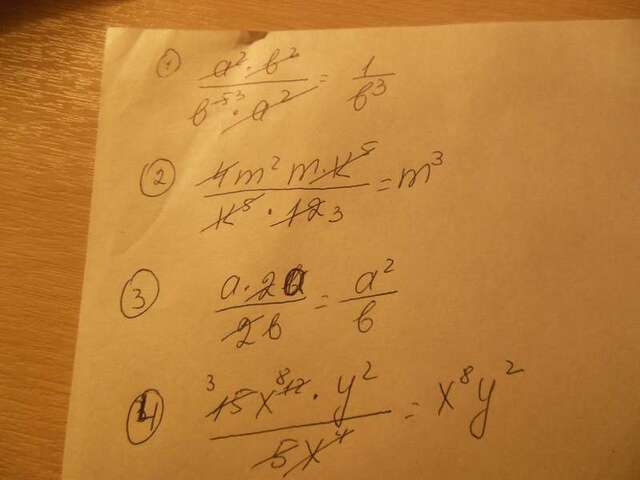 ① a²·b² / b⁵³·a² = 1 / b³
② 4m² m·k⁵ / k⁵·12 3 = m³
③ a·2a / 2b = a² / b
④ ³15x⁸¹²·y² / 5x⁴ = x⁸y²